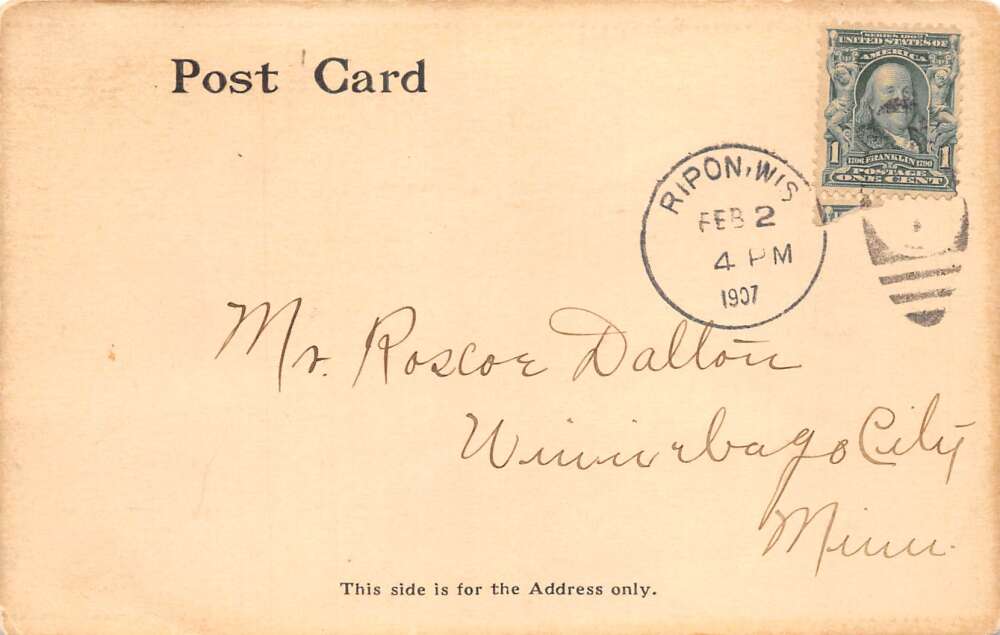 Post Card
SERIES 1902
UNITED STATES OF
AMERICA
1 1706 FRANKLIN 1790 1
POSTAGE
ONE CENT
RIPON, WIS
FEB 2
4 PM
1907
Mr. Roscoe Dalton
Winnebago City
Minn.
This side is for the Address only.